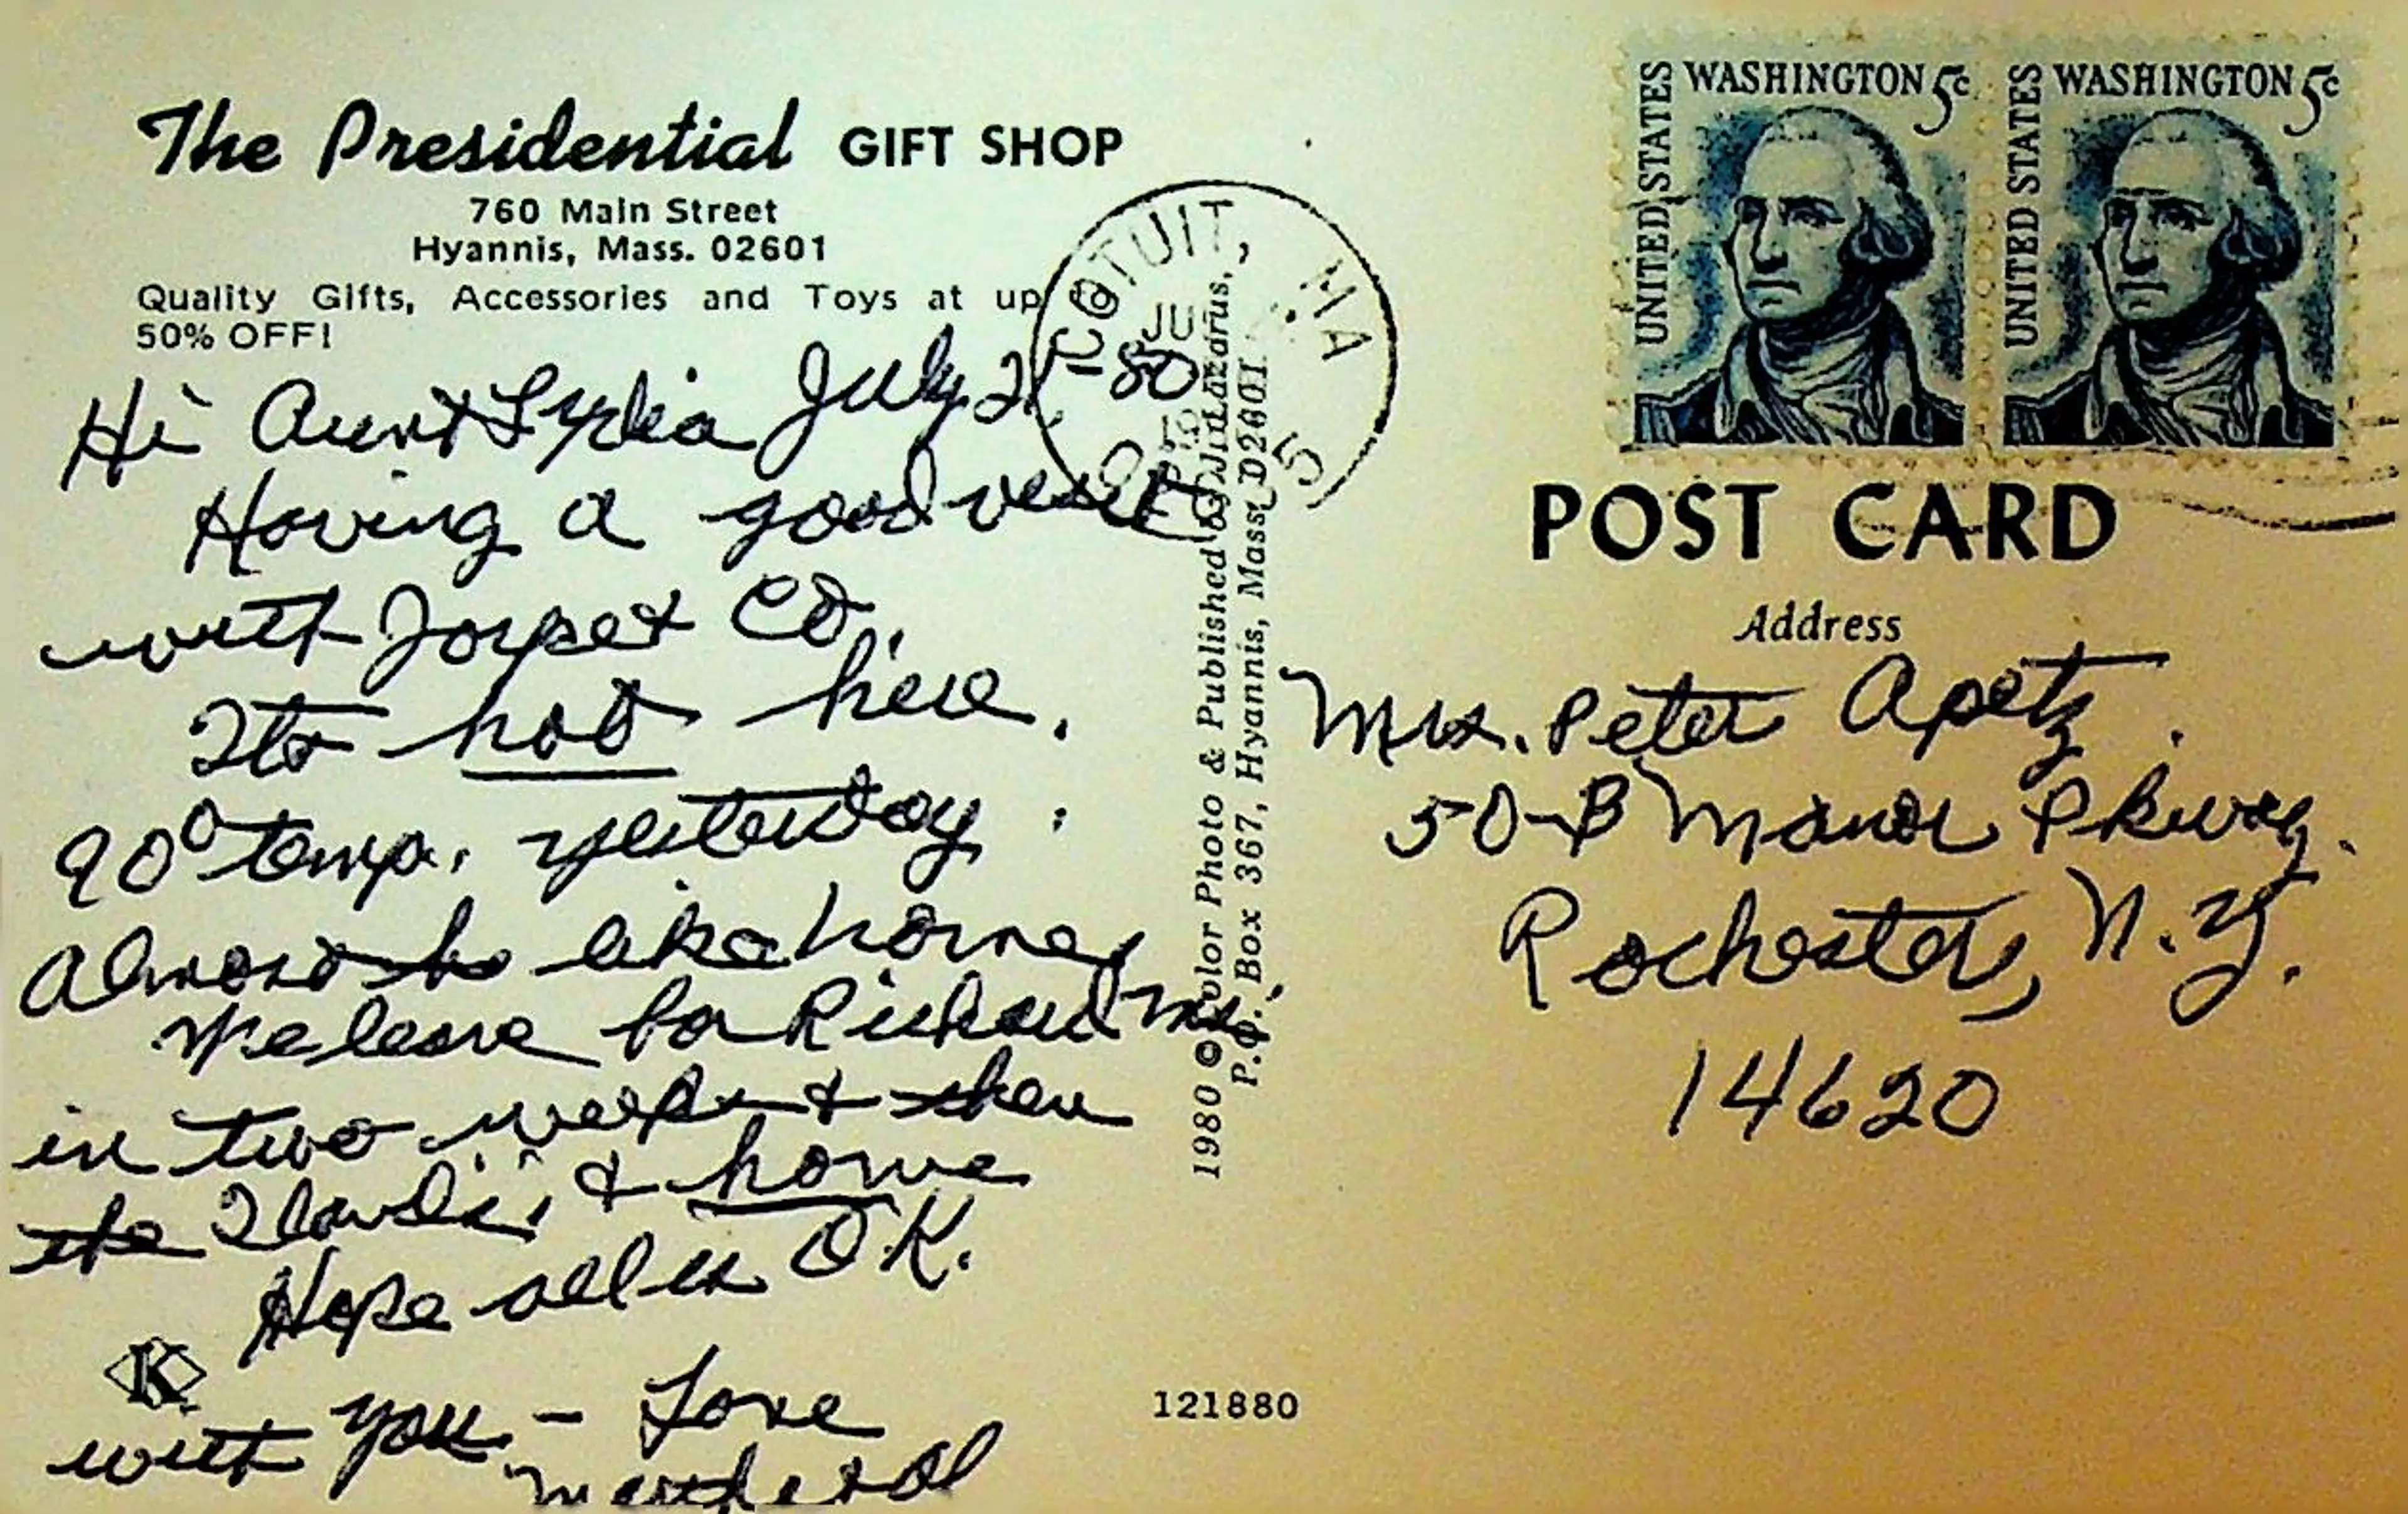 The Presidential GIFT SHOP
760 Main Street
Hyannis, Mass. 02601
Quality Gifts, Accessories and Toys at up to
50% OFF!
Hi Aunt Lydia July 21-80
Having a good visit
with Joyce & Co.
Its hot here.
90° temp. yesterday
Almost like home,
We leave for Richard
in two weeks & then
the & home
Hope all is O.K.
with you - Love
K
121880
1980 © Color Photo & Published by
P.O. Box 367, Hyannis, Mass. 02601
COTUIT, MA
JU
UNITED STATES WASHINGTON 5c
UNITED STATES WASHINGTON 5c
POST CARD
Address
Mrs. Peter Apetz
50-B Manor Pkway.
Rochester, N.Y.
14620